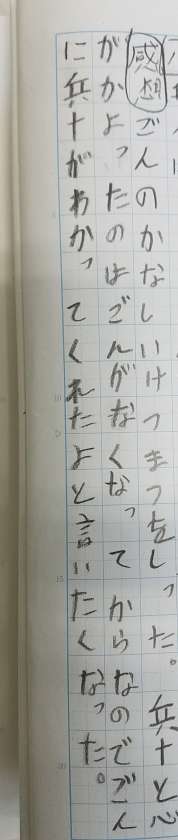 感想ごんのかなしいけつまつをしった。兵十と心
がかよったのはごんがなくなってからなのでごん
に兵十がわかってくれたよと言いたくなった。